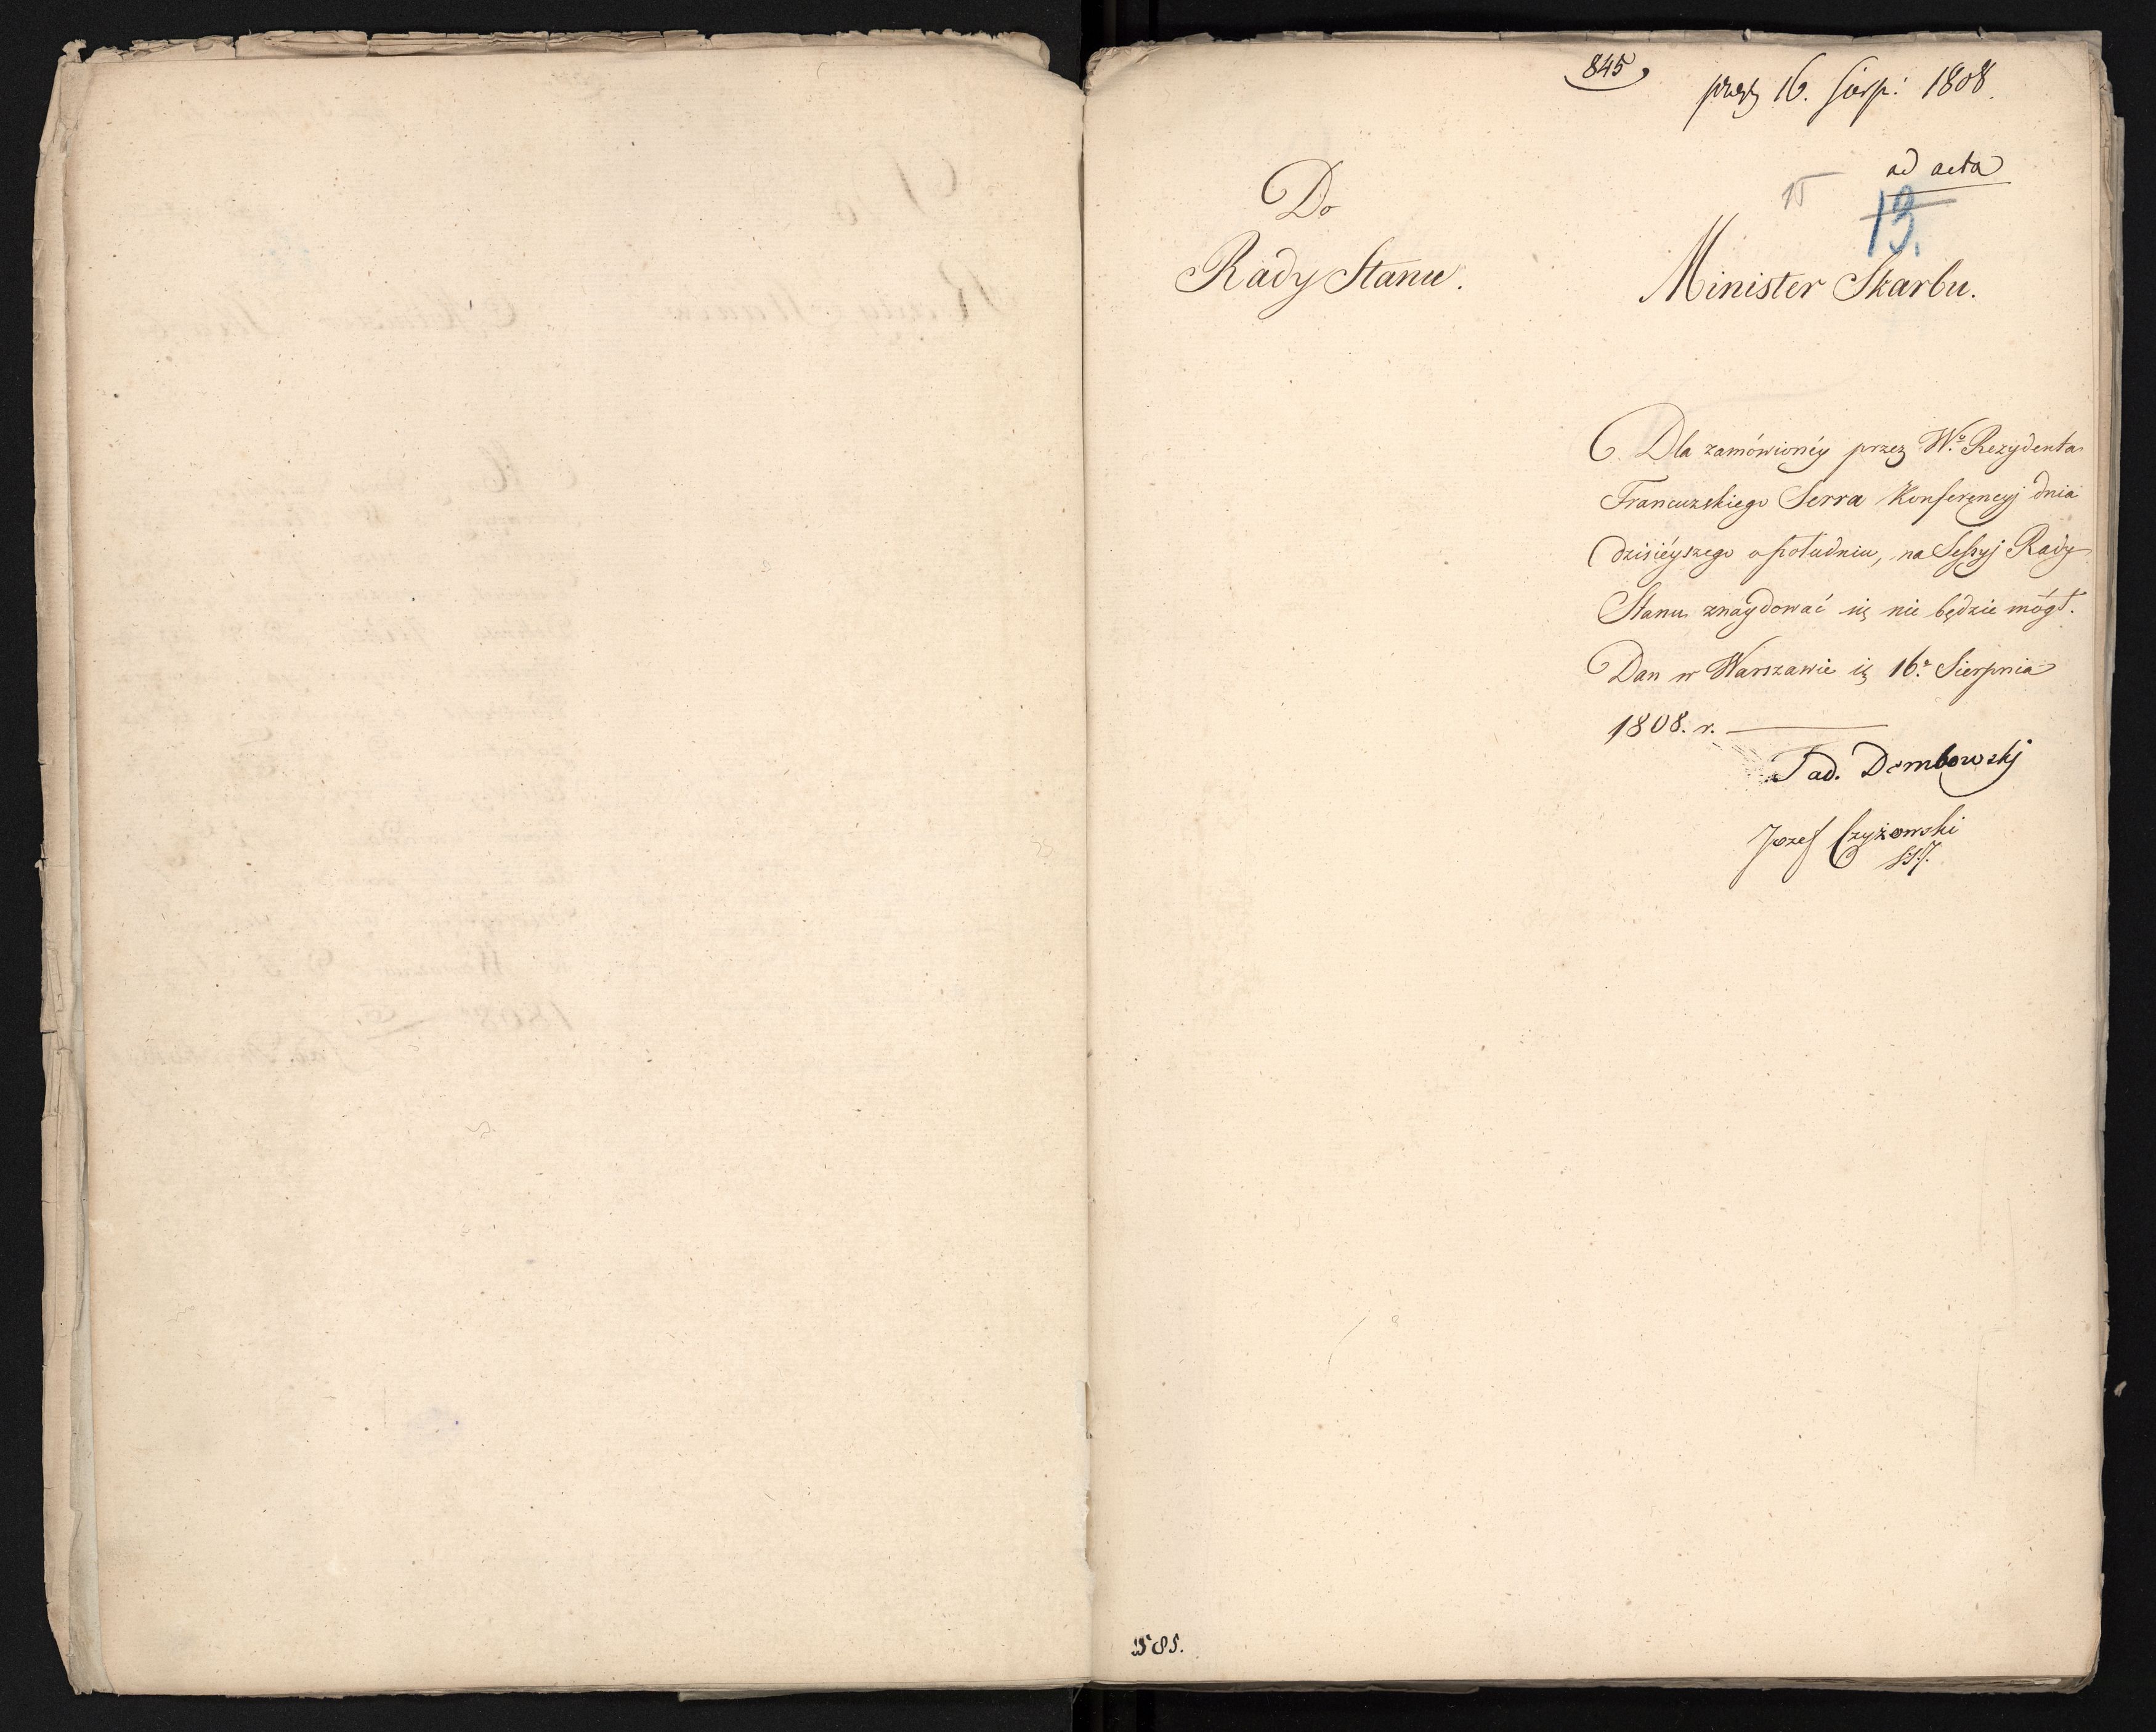 845
prez 16. Sierp: 1808.
ad acta
15
13.
Do
Rady Stanu.
Minister Skarbu.
Dla zamówionéy przez Wo. Rezydenta
Francuzkiego Serra Konferencyj dnia
dzisiéyszego o południu, na Sessyj Rady
Stanu znaydować się nie będzie mógł.
Dan w Warszawie d. 16. Sierpnia
1808. r.
Tad. Dembowskj
Jozef Czyżewski
585.